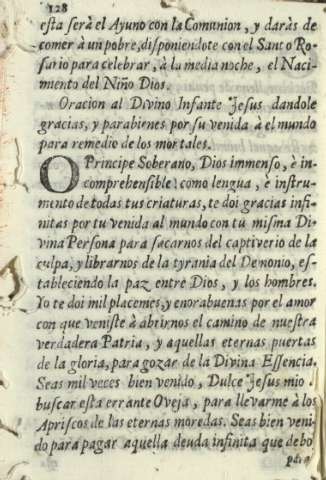 128
esta serà el Ayuno con la Comunion, y daràs de
comer à un pobre, disponiendote con el Santo Ro-
sario para celebrar, à la media noche, el Naci-
miento del Niño Dios.
Oracion al Divino Infante Jesus dandole
gracias, y parabienes por su venida à el mundo
para remedio de los mortales.
O Principe Soberano, Dios immenso, è in-
comprehensible! como lengua, è instru-
mento de todas tus criaturas, te doi gracias infi-
nitas por tu venida al mundo con tu misma Di-
vina Persona para sacarnos del captiverio de la
culpa, y librarnos de la tyrania del Demonio, es-
tableciendo la paz entre Dios, y los hombres.
Yo te doi mil placemes, y enorabuenas por el amor
con que veniste à abrirnos el camino de nuestra
verdadera Patria, y aquellas eternas puertas
de la gloria, para gozar de la Divina Essencia.
Seas mil veces bien venido, Dulce Jesus mio
buscar esta errante Oveja, para llevarme à los
Apriscos de las eternas moredas. Seas bien veni-
do para pagar aquella deuda infinita que debo
para